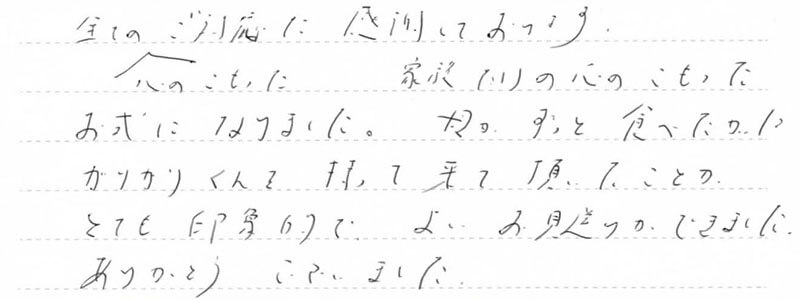 全てのご対応に感謝しております。
心のこもった 家族だけの心のこもった
お式になりました。父が ずっと食べたかった
ガリガリくんを 持って来て頂いたことが
とても印象的で よいお見送りができました。
ありがとうございました。